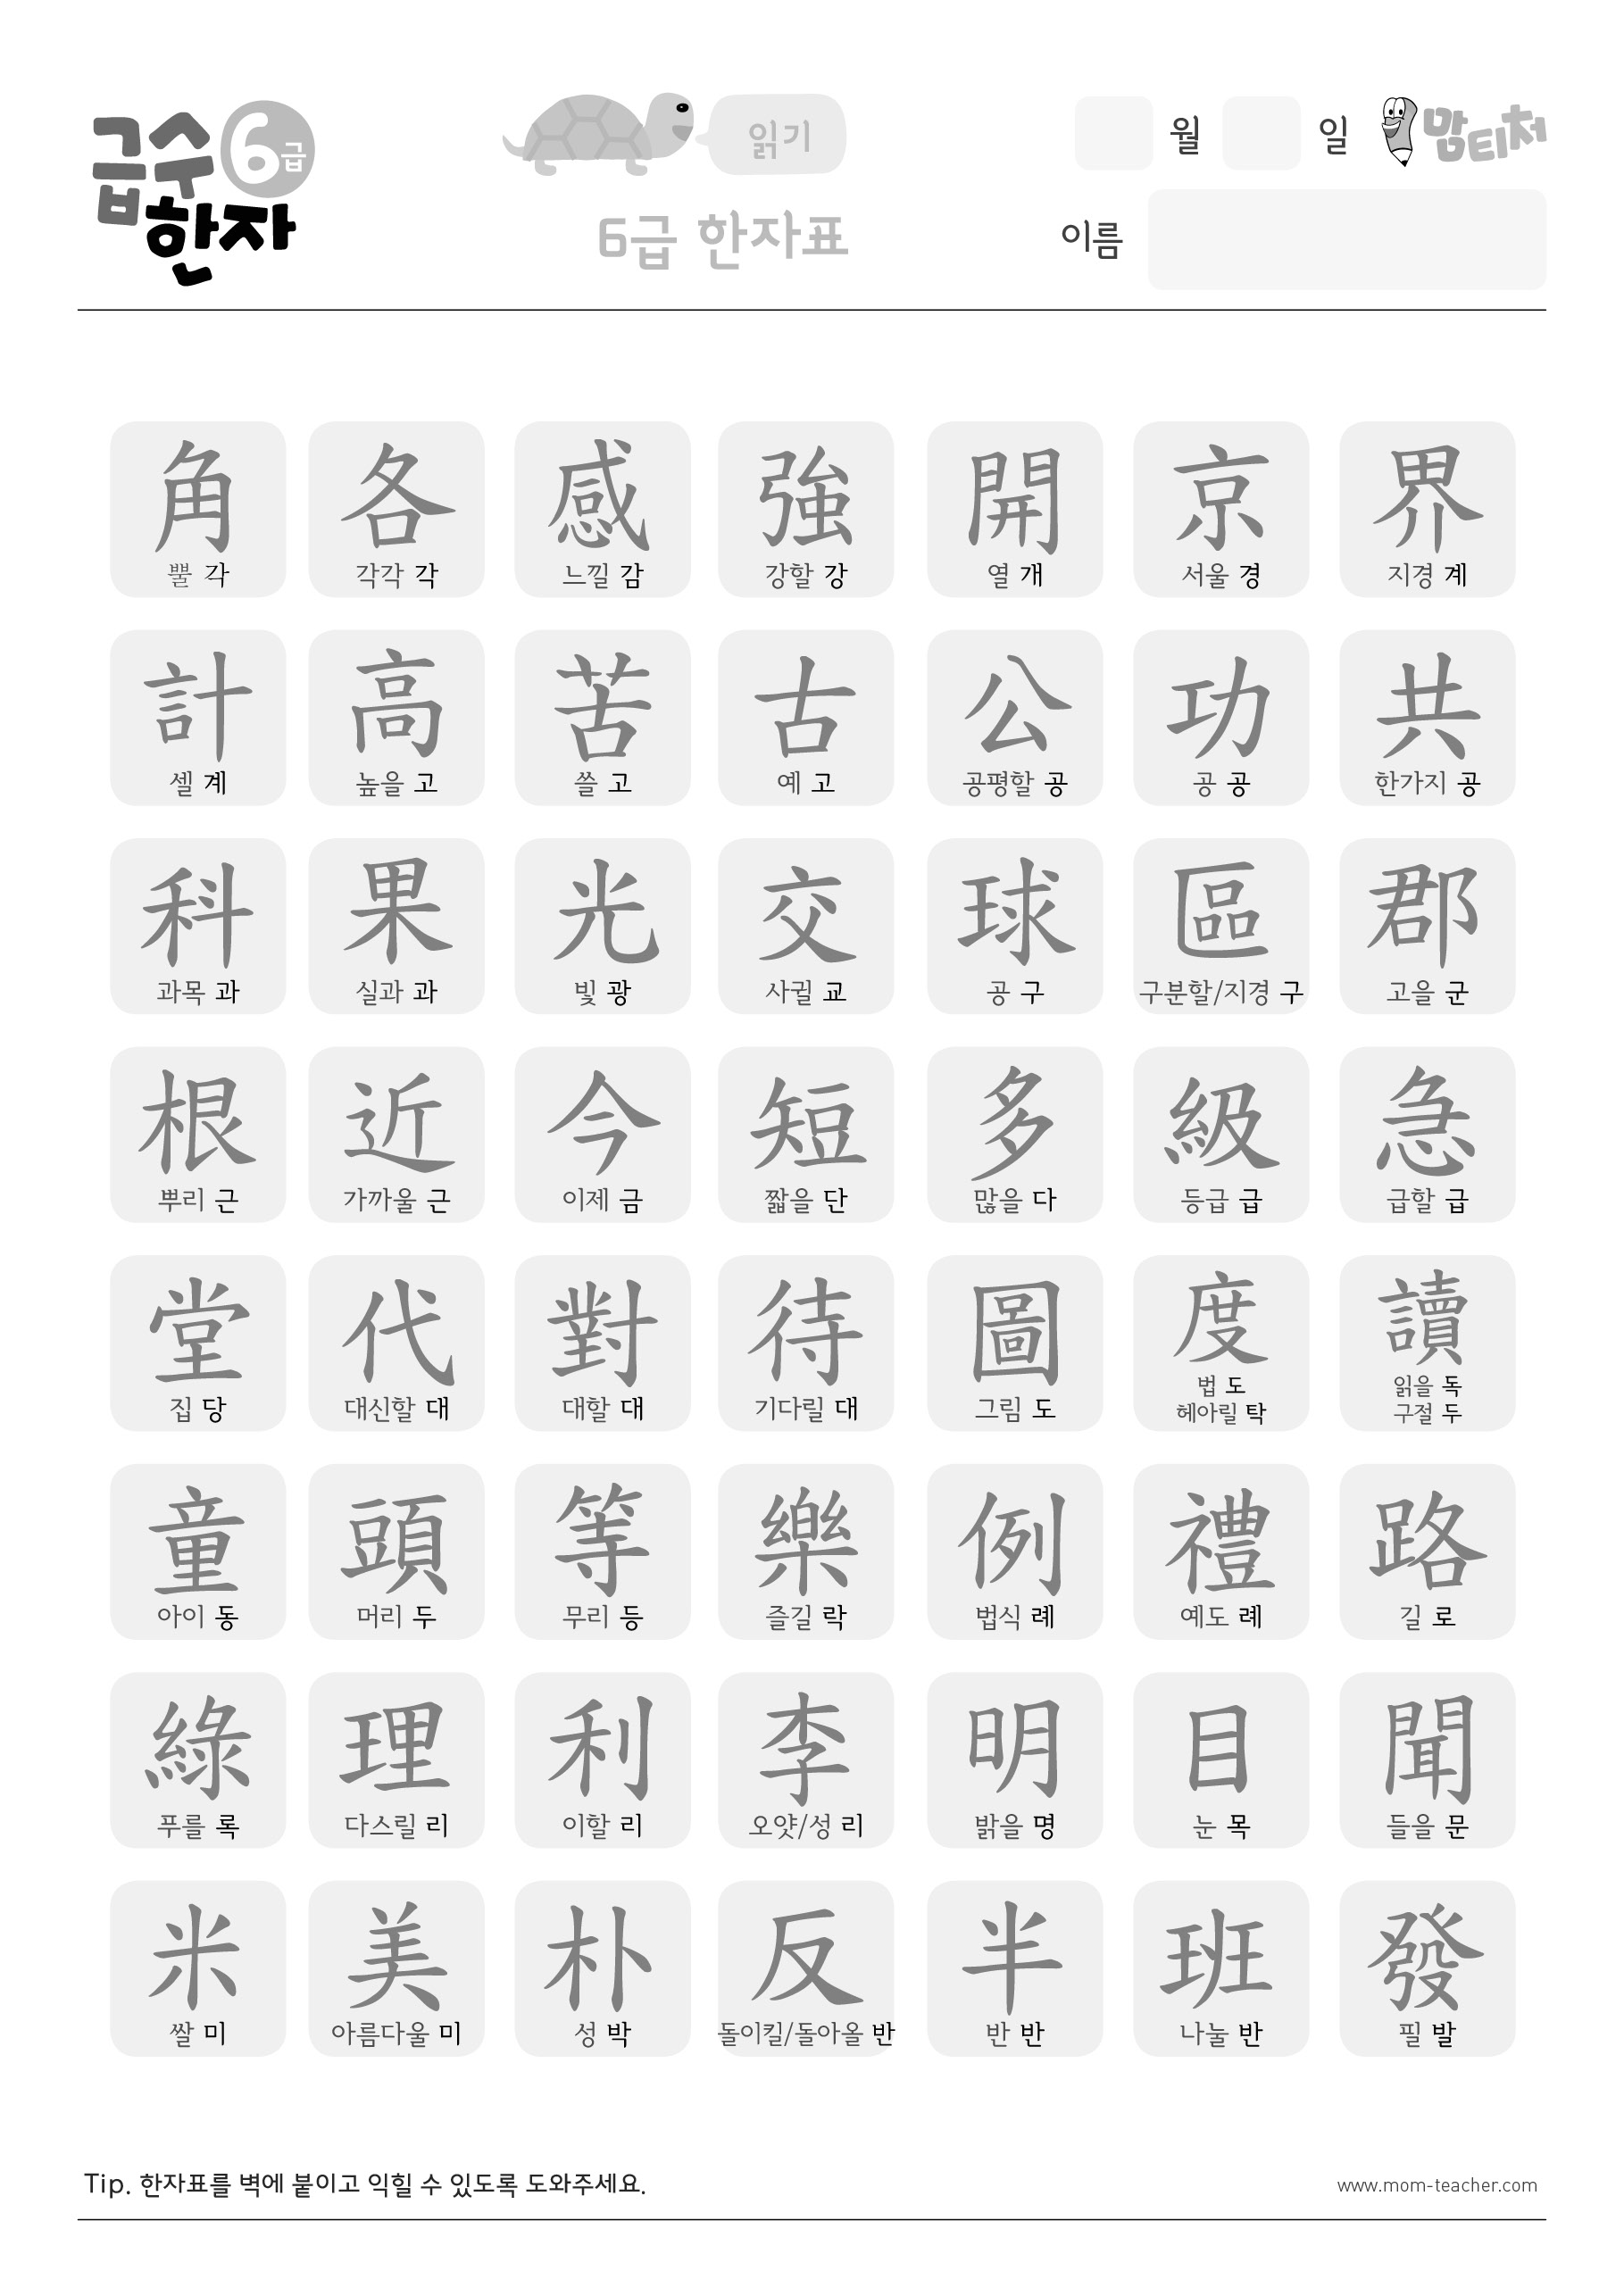 급수 6급
한자
읽기
6급 한자표
월 일 맘티처
이름
角 各 感 強 開 京 界
뿔 각 각각 각 느낄 감 강할 강 열 개 서울 경 지경 계
計 高 苦 古 公 功 共
셀 계 높을 고 쓸 고 예 고 공평할 공 공 공 한가지 공
科 果 光 交 球 區 郡
과목 과 실과 과 빛 광 사귈 교 공 구 구분할/지경 구 고을 군
根 近 今 短 多 級 急
뿌리 근 가까울 근 이제 금 짧을 단 많을 다 등급 급 급할 급
堂 代 對 待 圖 度 讀
집 당 대신할 대 대할 대 기다릴 대 그림 도 법 도 읽을 독
헤아릴 탁 구절 두
童 頭 等 樂 例 禮 路
아이 동 머리 두 무리 등 즐길 락 법식 례 예도 례 길 로
綠 理 利 李 明 目 聞
푸를 록 다스릴 리 이할 리 오얏/성 리 밝을 명 눈 목 들을 문
米 美 朴 反 半 班 發
쌀 미 아름다울 미 성 박 돌이킬/돌아올 반 반 반 나눌 반 필 발
Tip. 한자표를 벽에 붙이고 익힐 수 있도록 도와주세요.
www.mom-teacher.com